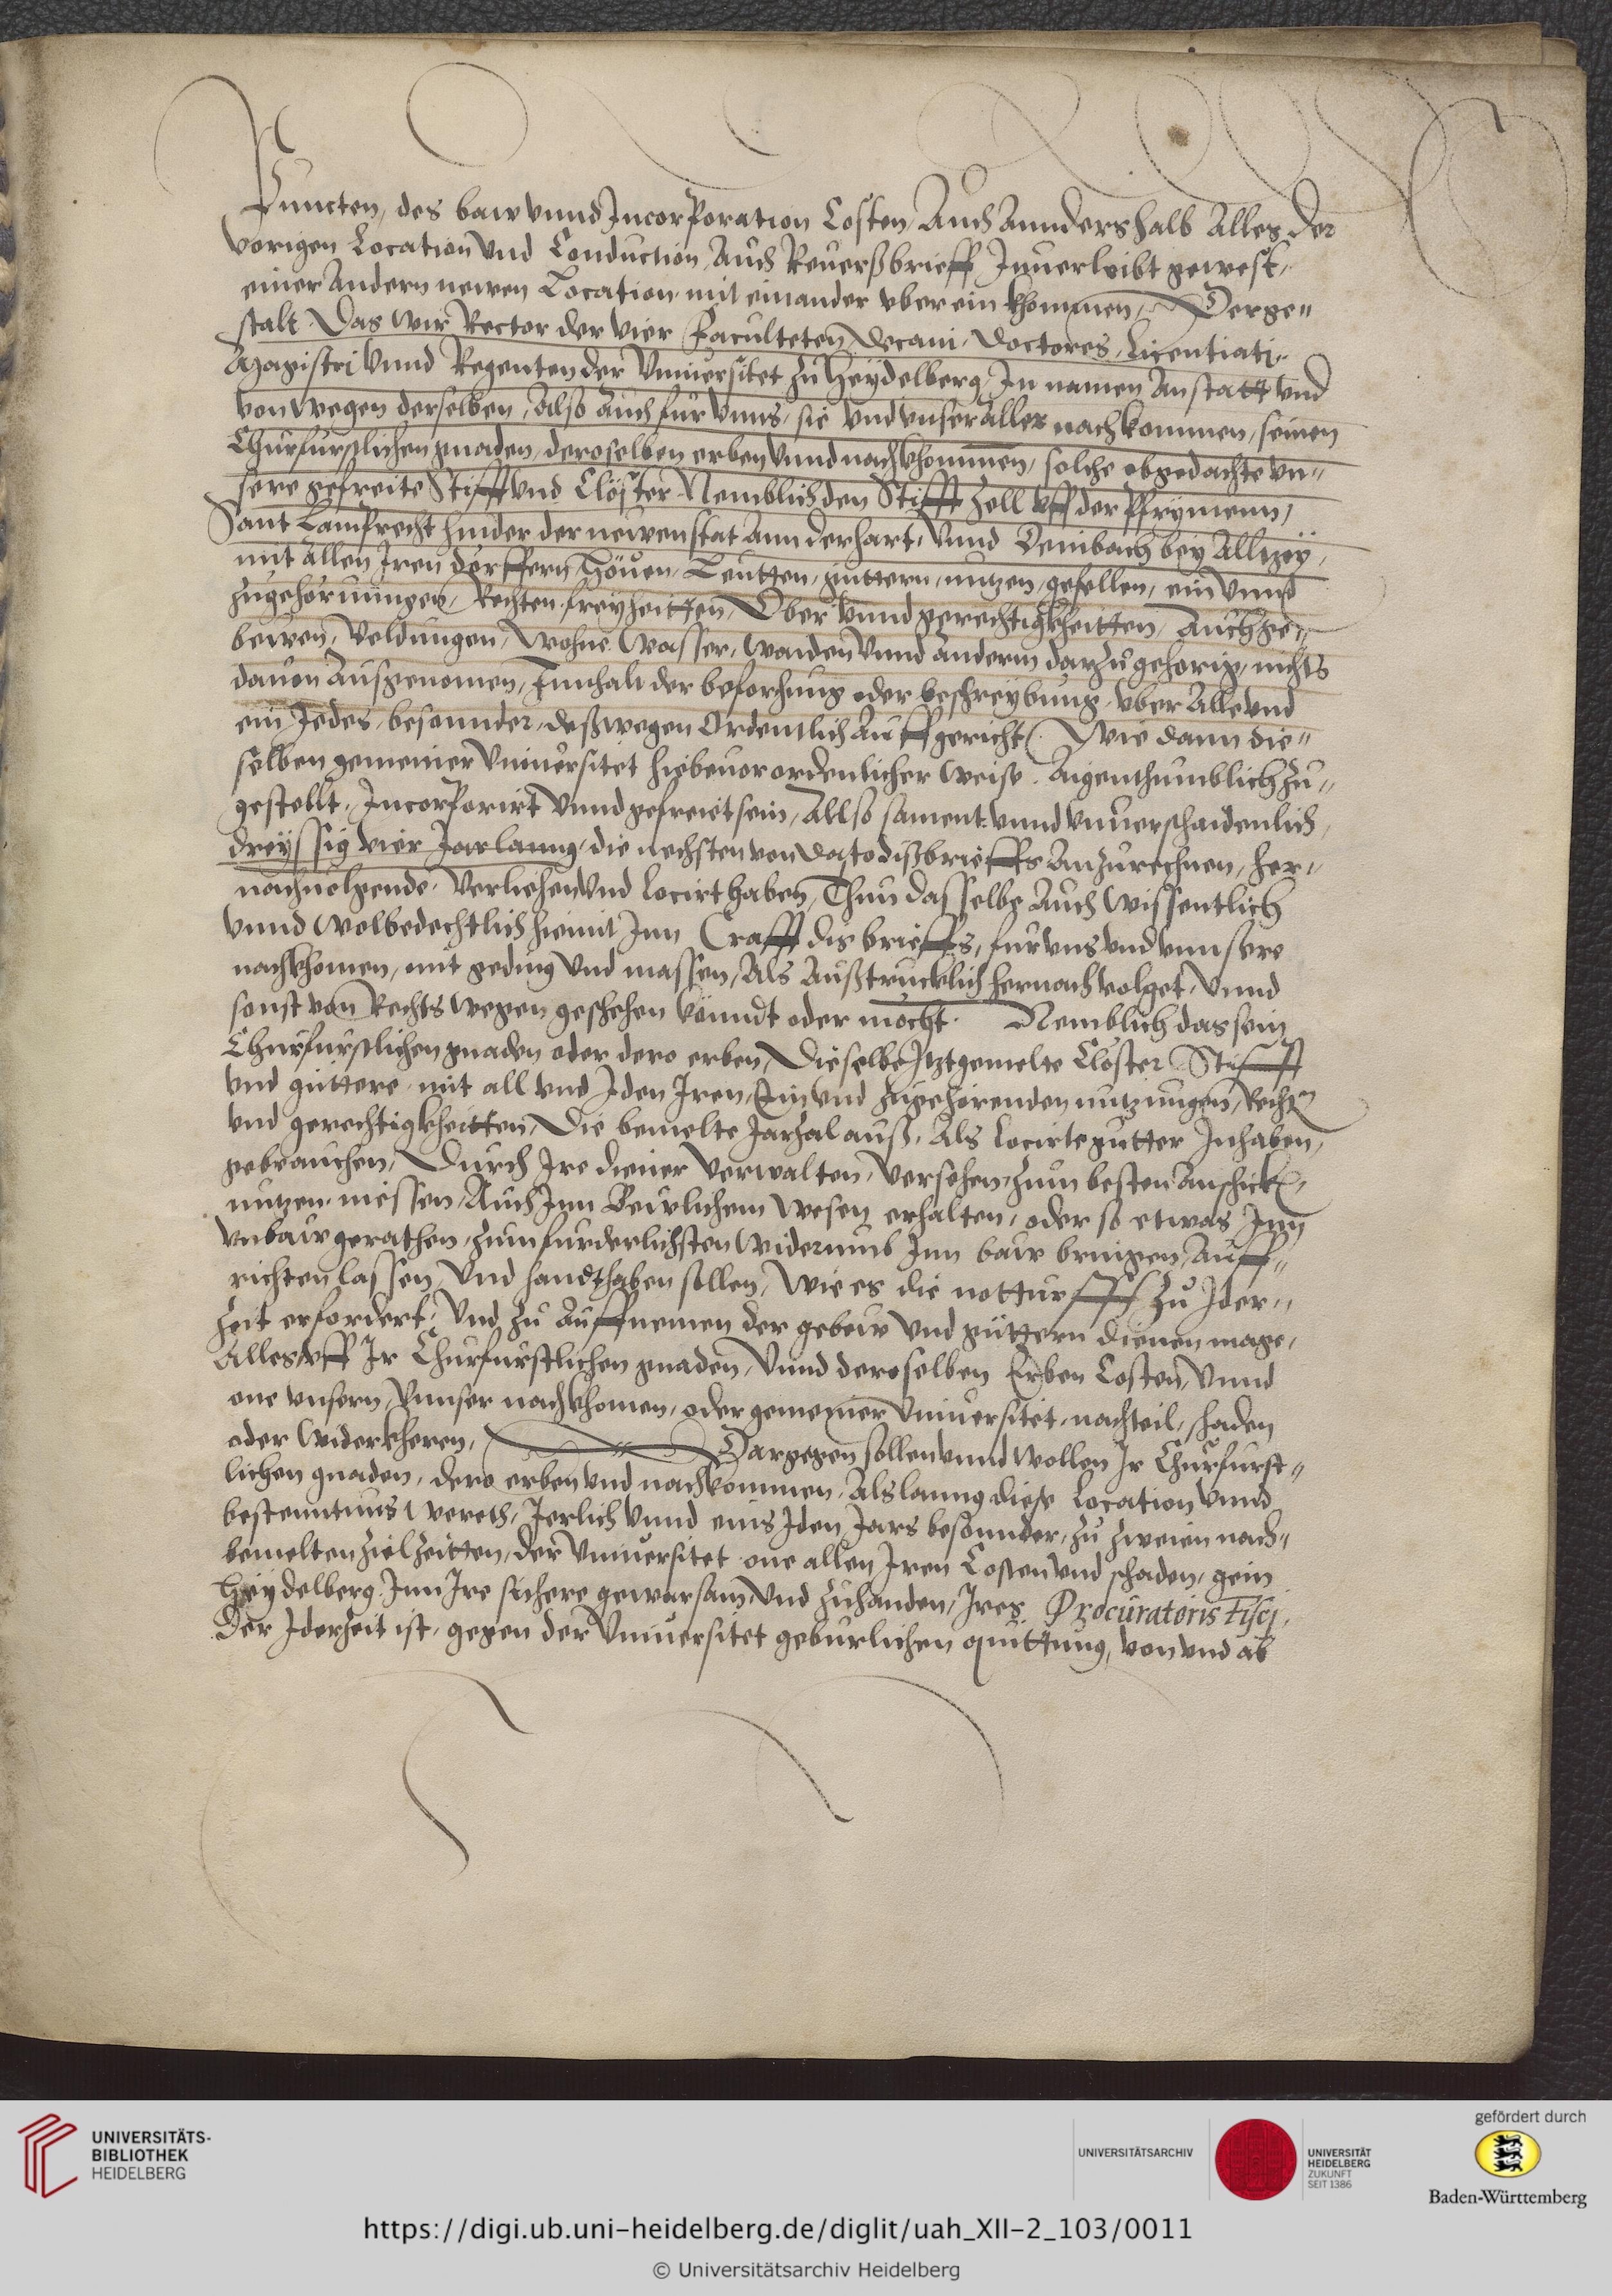 Puncten, des baw vnnd Incorporation Costen Auch Annders halb Alles der
vorigen Location Vnd Conduction, Auch Reuerßbrieff Innerleibt gewest,
einer Andern newen Location mit einander vberein khommen, Derge„
stalt. Das Wir Rector der vier Faculteten, Decani, Doctores, Licentiati,
Magistri Vnnd Regenten der Vniuersitet zu Heydelberg, In namen Anstatt Vnd
von Wegen derselben, Also Auch fur Vnns, sie Vnd vnser Aller nachkommen, seinen
Churfurstlichen gnaden, deroselben erben Vnnd nachkhommen, solche obgedachte vn„
sere gefreite Stifft Vnd Clöster. Nemblich den Stifft Zell Vff der Pfrymenn,
Sant Lamprecht hinder der newenstat Ann der hart, Vnnd Deimbach bey Alltzey,
mit Allen Iren dörffern, Höuen, Leutten, guttern, nutzen, gefellen, ein Vnnd
zugehörunngen, Rechten, freyheitten, Ober Vnnd gerechtigkheitten, Auch ge„
bewen, Veldungen, Wohne Wasser, Waiden Vnnd Anderm darzu gehorig, nichts
dauon Ausgenomen, Innhalt der beforchung oder beschreybung, vber Alle vnd
ein Jedes, besonnder, deßwegen Ordentlich Auffgericht, Wie dann die„
selben gemeiner Vniuersitet hiebeuor ordenlicher Weise. Aigenthumblich zu„
gestellt, Incorporirt Vnnd gefreiet sein, Allso sament vnnd Vnuerschaidenlich,
dreyssig vier Jar lanng, die nechsten von dato dißbrieffs Anzurechnen, her„
nachuolgende, Verliehen Vnd Locirt haben, Thun dasselbe Auch Wissentlich
Vnnd Wolbedechtlich hiemit Inn Crafft dis brieffs, fur vns Vnd vnnsere
nachkhomen, mit geding Vnd massen, Als Außtrucklich hernach volget, Vnnd
sonst von Rechts Wegen geschehen könndt oder möcht. Nemblich das sein
Churfurstlichen gnaden oder dero erben, Dieselbe Itztgemelte Clöster Stifft
Vnd güttere, mit all Vnd Iden Iren, Ein Vnd zugehörenden nutzungen, Recht
Vnd gerechtigkheitten, Die bemelte Jarzal auß, Als Locirte gutter Inhaben,
gebrauchen, Durch Ire diener Verwalten, Versehen, Zum besten Anschick,
nutzen, niessen, Auch Inn Beirlichem Wesen erhalten, oder so etwas Inn
Vnbaw gerathen, Zum furderlichsten Widerumb Inn baw bringen, Auff„
richten lassen, Vnd handthaben sollen, Wie es die notturfft zu Ider„
Zeit erfordert, Vnd zu Auffnemen der gebew Vnd güttern dienen mage,
Alles Vff Ir Churfurstlichen gnaden, Vnnd deroselben Erben Costen, Vnnd
one vnsern, Vnnser nachkhomen, oder gemeiner Vniuersitet, nachteil, schaden
oder Widerkheren, Dargegen sollen vnnd Wollen Ir Churfurst„
lichen gnaden, dero erben vnd nachkommen, Als lanng diese Location Vnnd
bestenntnus Wereth, Jerlich Vnnd eins Iden Jars besonnder, zu zweien nach„
bemelten Zielzeitten, der Vniuersitet one allen Iren Costen Vnd schaden, gein
Heydelberg, Inn Ire sichere gewarsam, Vnd zuhanden, Ires Procuratoris Fisci,
Der Iderzeit ist, gegen der Vniuersitet geburlichen quittung, von vnd ab
UNIVERSITÄTS-
BIBLIOTHEK
HEIDELBERG
UNIVERSITÄTSARCHIV
UNIVERSITÄT
HEIDELBERG
ZUKUNFT
SEIT 1386
gefördert durch
Baden-Württemberg
https://digi.ub.uni-heidelberg.de/diglit/uah_XII-2_103/0011
© Universitätsarchiv Heidelberg